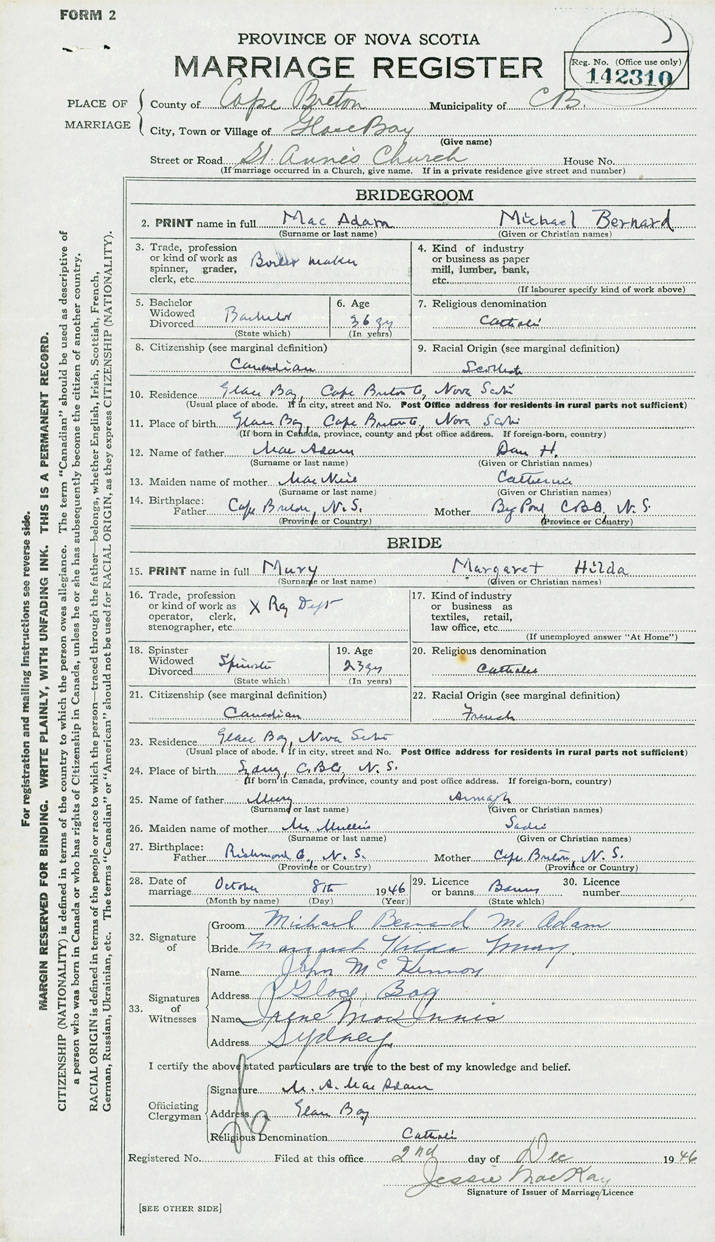 FORM 2
PROVINCE OF NOVA SCOTIA
MARRIAGE REGISTER
Reg. No. (Office use only)
142310
PLACE OF MARRIAGE
County of Cape Breton Municipality of C.B.
City, Town or Village of Glace Bay
(Give name)
Street or Road St. Anne's Church House No.
(If marriage occurred in a Church, give name. If in a private residence give street and number)
BRIDEGROOM
2. PRINT name in full Mac Adam Michael Bernard
(Surname or last name) (Given or Christian names)
3. Trade, profession or kind of work as spinner, grader, clerk, etc. Boiler maker
4. Kind of industry or business as paper mill, lumber, bank, etc.
(If labourer specify kind of work above)
5. Bachelor Widowed Divorced Bachelor
(State which)
6. Age 36 yr
(In years)
7. Religious denomination
Catholic
8. Citizenship (see marginal definition)
Canadian
9. Racial Origin (see marginal definition)
Scottish
10. Residence Glace Bay, Cape Breton Co, Nova Scotia
(Usual place of abode. If in city, street and No. Post Office address for residents in rural parts not sufficient)
11. Place of birth Glace Bay, Cape Breton Co, Nova Scotia
(If born in Canada, province, county and post office address. If foreign-born, country)
12. Name of father Mac Adam Dan H.
(Surname or last name) (Given or Christian names)
13. Maiden name of mother Mac Neil Catherine
(Surname or last name) (Given or Christian names)
14. Birthplace: Father Cape Breton, N.S. Mother C.B.Co, N.S.
(Province or Country) (Province or Country)
BRIDE
15. PRINT name in full Mury Margaret Hilda
(Surname or last name) (Given or Christian names)
16. Trade, profession or kind of work as operator, clerk, stenographer, etc. X Ray Dept
17. Kind of industry or business as textiles, retail, law office, etc.
(If unemployed answer "At Home")
18. Spinster Widowed Divorced Spinster
(State which)
19. Age 23 yr
(In years)
20. Religious denomination
Catholic
21. Citizenship (see marginal definition)
Canadian
22. Racial Origin (see marginal definition)
French
23. Residence Glace Bay, Nova Scotia
(Usual place of abode. If in city, street and No. Post Office address for residents in rural parts not sufficient)
24. Place of birth Sydney, C.B.Co, N.S.
(If born in Canada, province, county and post office address. If foreign-born, country)
25. Name of father Mury
(Surname or last name) (Given or Christian names)
26. Maiden name of mother Mc Mullin Sadie
(Surname or last name) (Given or Christian names)
27. Birthplace: Father Richmond Co, N.S. Mother Cape Breton, N.S.
(Province or Country) (Province or Country)
28. Date of marriage October 8th 1946
(Month by name) (Day) (Year)
29. Licence or banns Banns
(State which)
30. Licence number
32. Signature of
Groom Michael Bernard Mc Adam
Bride Margaret Hilda Mury.
33. Signatures of Witnesses
Name John McKinnon
Address Glace Bay
Name Irene MacInnis
Address Sydney
I certify the above stated particulars are true to the best of my knowledge and belief.
Officiating Clergyman
Signature M. A. Mac Adam
Address Glace Bay
Religious Denomination Catholic
Registered No. Filed at this office 2nd day of Dec 1946
Jessie MacKay
Signature of Issuer of Marriage Licence
[SEE OTHER SIDE]
For registration and mailing instructions see reverse side.
MARGIN RESERVED FOR BINDING. WRITE PLAINLY, WITH UNFADING INK. THIS IS A PERMANENT RECORD.
CITIZENSHIP (NATIONALITY) is defined in terms of the country to which the person owes allegiance. The term "Canadian" should be used as descriptive of
a person who was born in Canada or who has rights of Citizenship in Canada, unless he or she has subsequently become the citizen of another country.
RACIAL ORIGIN is defined in terms of the people or race to which the person—traced through the father—belongs, whether English, Irish, Scottish, French,
German, Russian, Ukrainian, etc. The terms "Canadian" or "American" should not be used for RACIAL ORIGIN, as they express CITIZENSHIP (NATIONALITY).